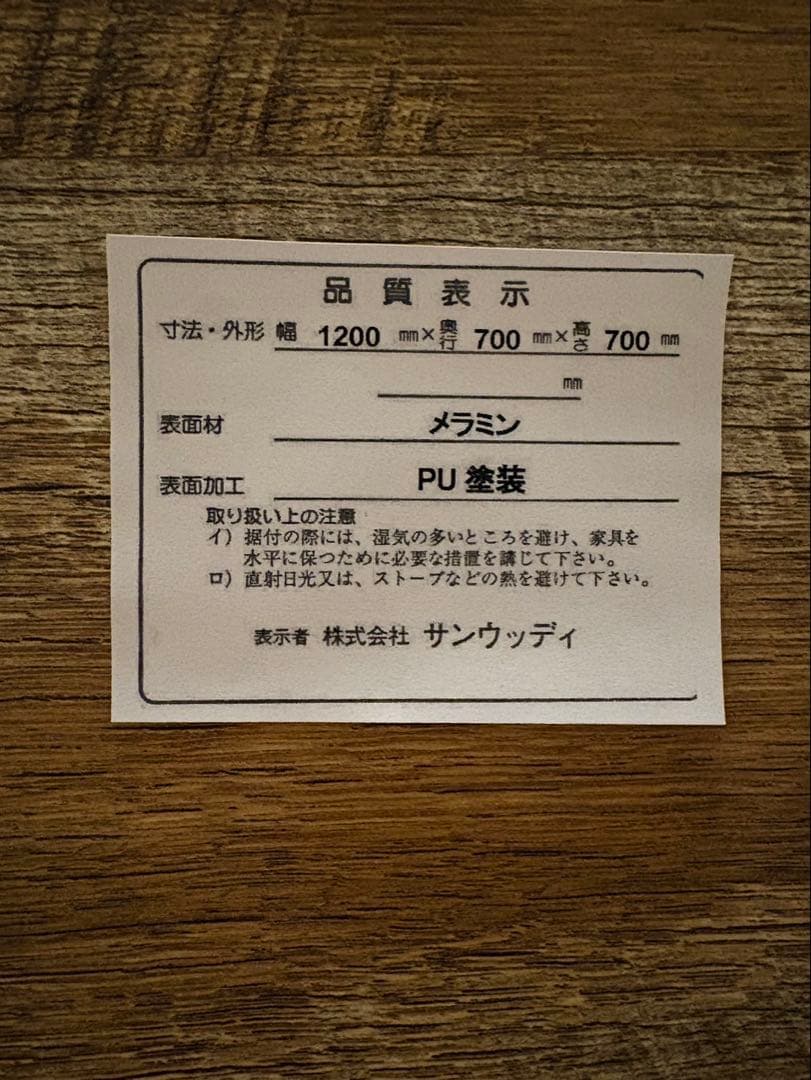 品質表示
寸法・外形 幅 1200 ㎜×奥行 700 ㎜×高さ 700 ㎜
㎜
表面材 メラミン
表面加工 PU 塗装
取り扱い上の注意
イ）据付の際には、湿気の多いところを避け、家具を
水平に保つために必要な措置を講じて下さい。
ロ）直射日光又は、ストーブなどの熱を避けて下さい。
表示者 株式会社 サンウッディ